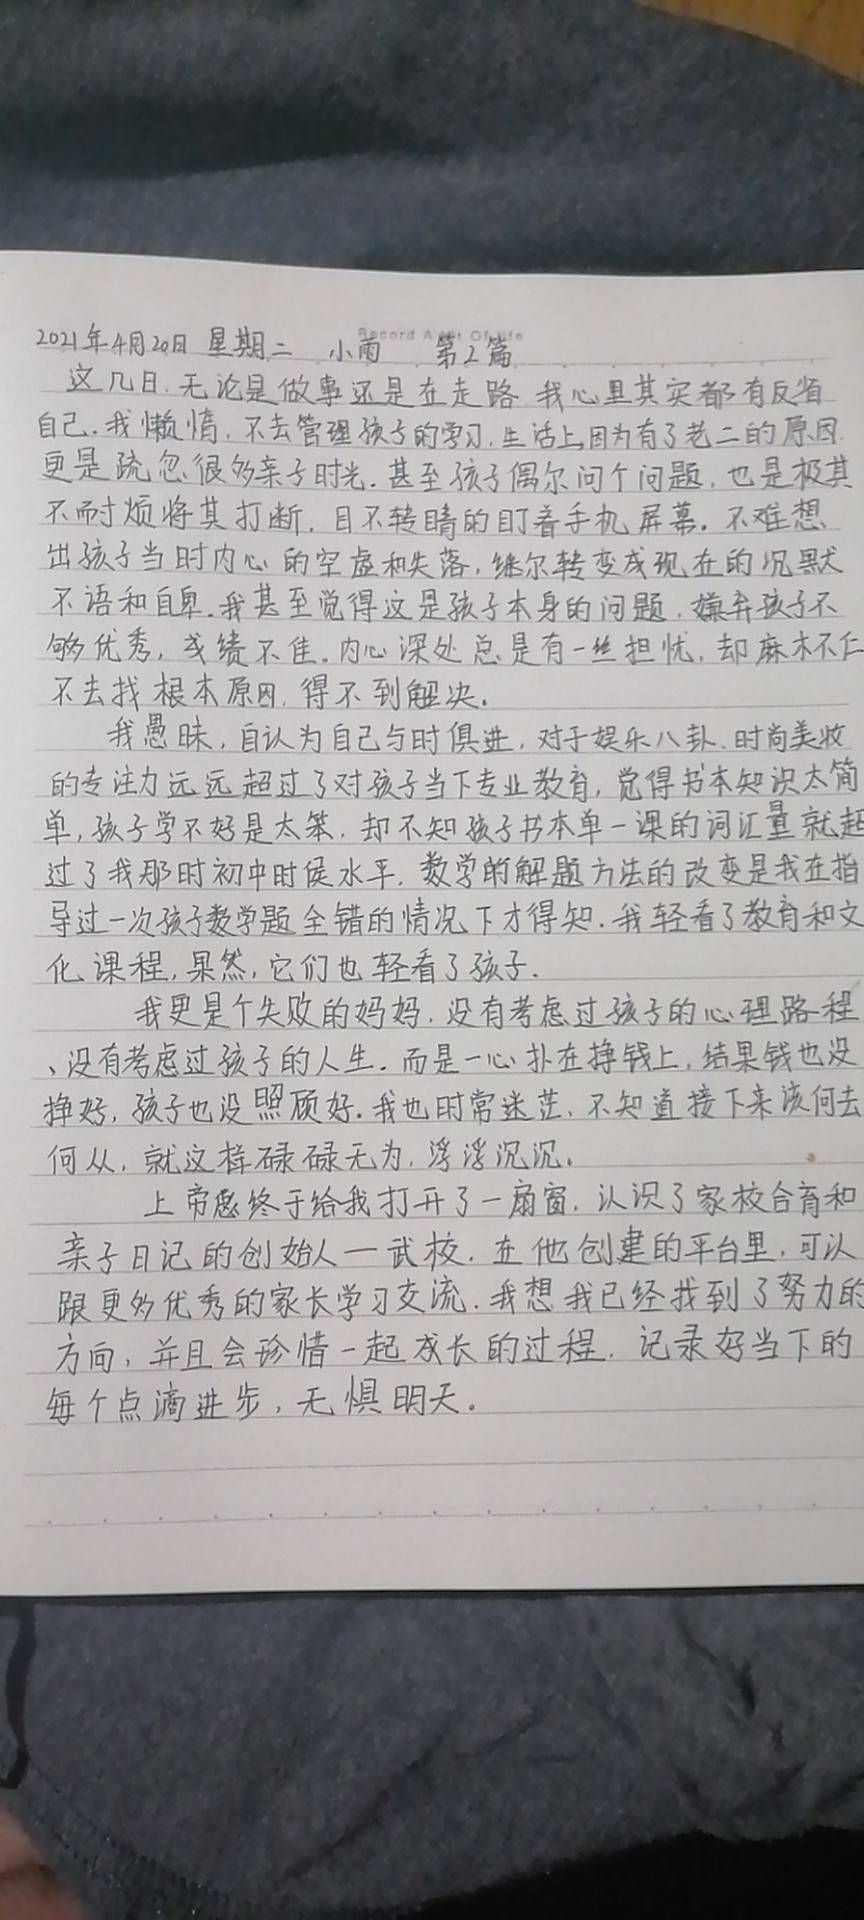 Record A Of Life
2021年4月20日 星期二 小雨 第2篇
这几日.无论是做事还是在走路 我心里其实都有反省
自己.我懒惰,不去管理孩子的学习.生活上,因为有了老二的原因.
更是疏忽很多亲子时光.甚至孩子偶尔问个问题,也是极其
不耐烦将其打断.目不转睛的盯着手机屏幕。不难想
出孩子当时内心的空虚和失落,继尔转变成现在的沉默
不语和自卑.我甚至觉得这是孩子本身的问题.嫌弃孩子不
够优秀,成绩不佳。内心深处总是有一丝担忧,却麻木不仁
不去找根本原因.得不到解决。
我愚昧,自认为自己与时俱进,对于娱乐八卦.时尚美妆
的专注力远远超过了对孩子当下专业教育,觉得书本知识太简
单,孩子学不好是太笨.却不知孩子书本单一课的词汇量就超
过了我那时初中时侯水平.数学的解题方法的改变是我在指
导过一次孩子数学题全错的情况下才得知.我轻看了教育和文
化课程,果然,它们也轻看了孩子.
我更是个失败的妈妈.没有考虑过孩子的心理路程
、没有考虑过孩子的人生.而是一心扑在挣钱上,结果钱也没
挣好,孩子也没照顾好.我也时常迷茫.不知道接下来该何去
何从.就这样碌碌无为,浮浮沉沉。
上帝终于给我打开了一扇窗.认识了家校合育和
亲子日记的创始人一武校.在他创建的平台里,可以
跟更多优秀的家长学习交流.我想我已经找到了努力的
方向,并且会珍惜一起成长的过程.记录好当下的
每个点滴进步,无惧明天。